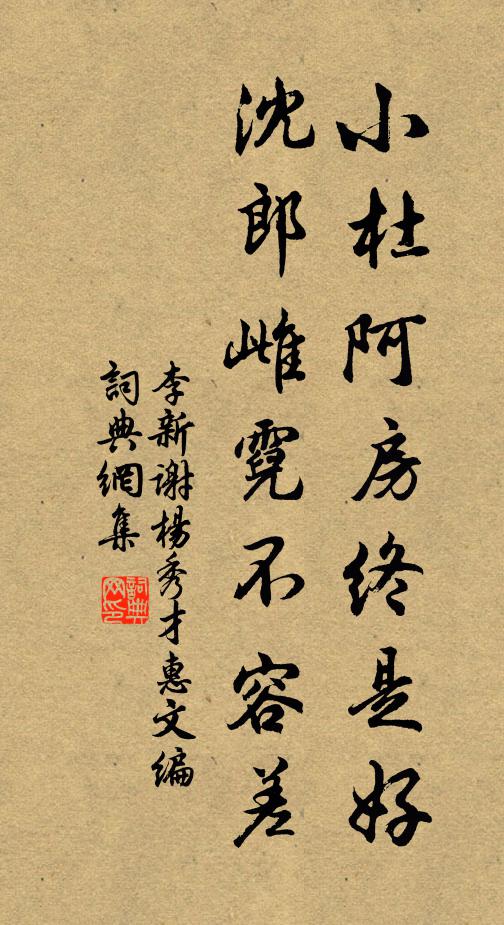 小杜阿房終是好
沈郎雌霓不容差
李新谢楊秀才惠文編
詞典網集
詞典网印